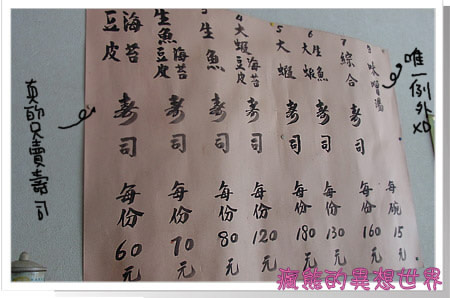 真的只賣壽司
海苔豆皮壽司每份60元
生魚海苔豆皮壽司每份70元
生魚壽司每份80元
大蝦海苔豆皮壽司每份120元
5大蝦壽司每份180元
6生魚大蝦壽司每份130元
7綜合壽司每份160元
8味噌湯每碗15元
唯一例外XD
瘋熊的異想世界